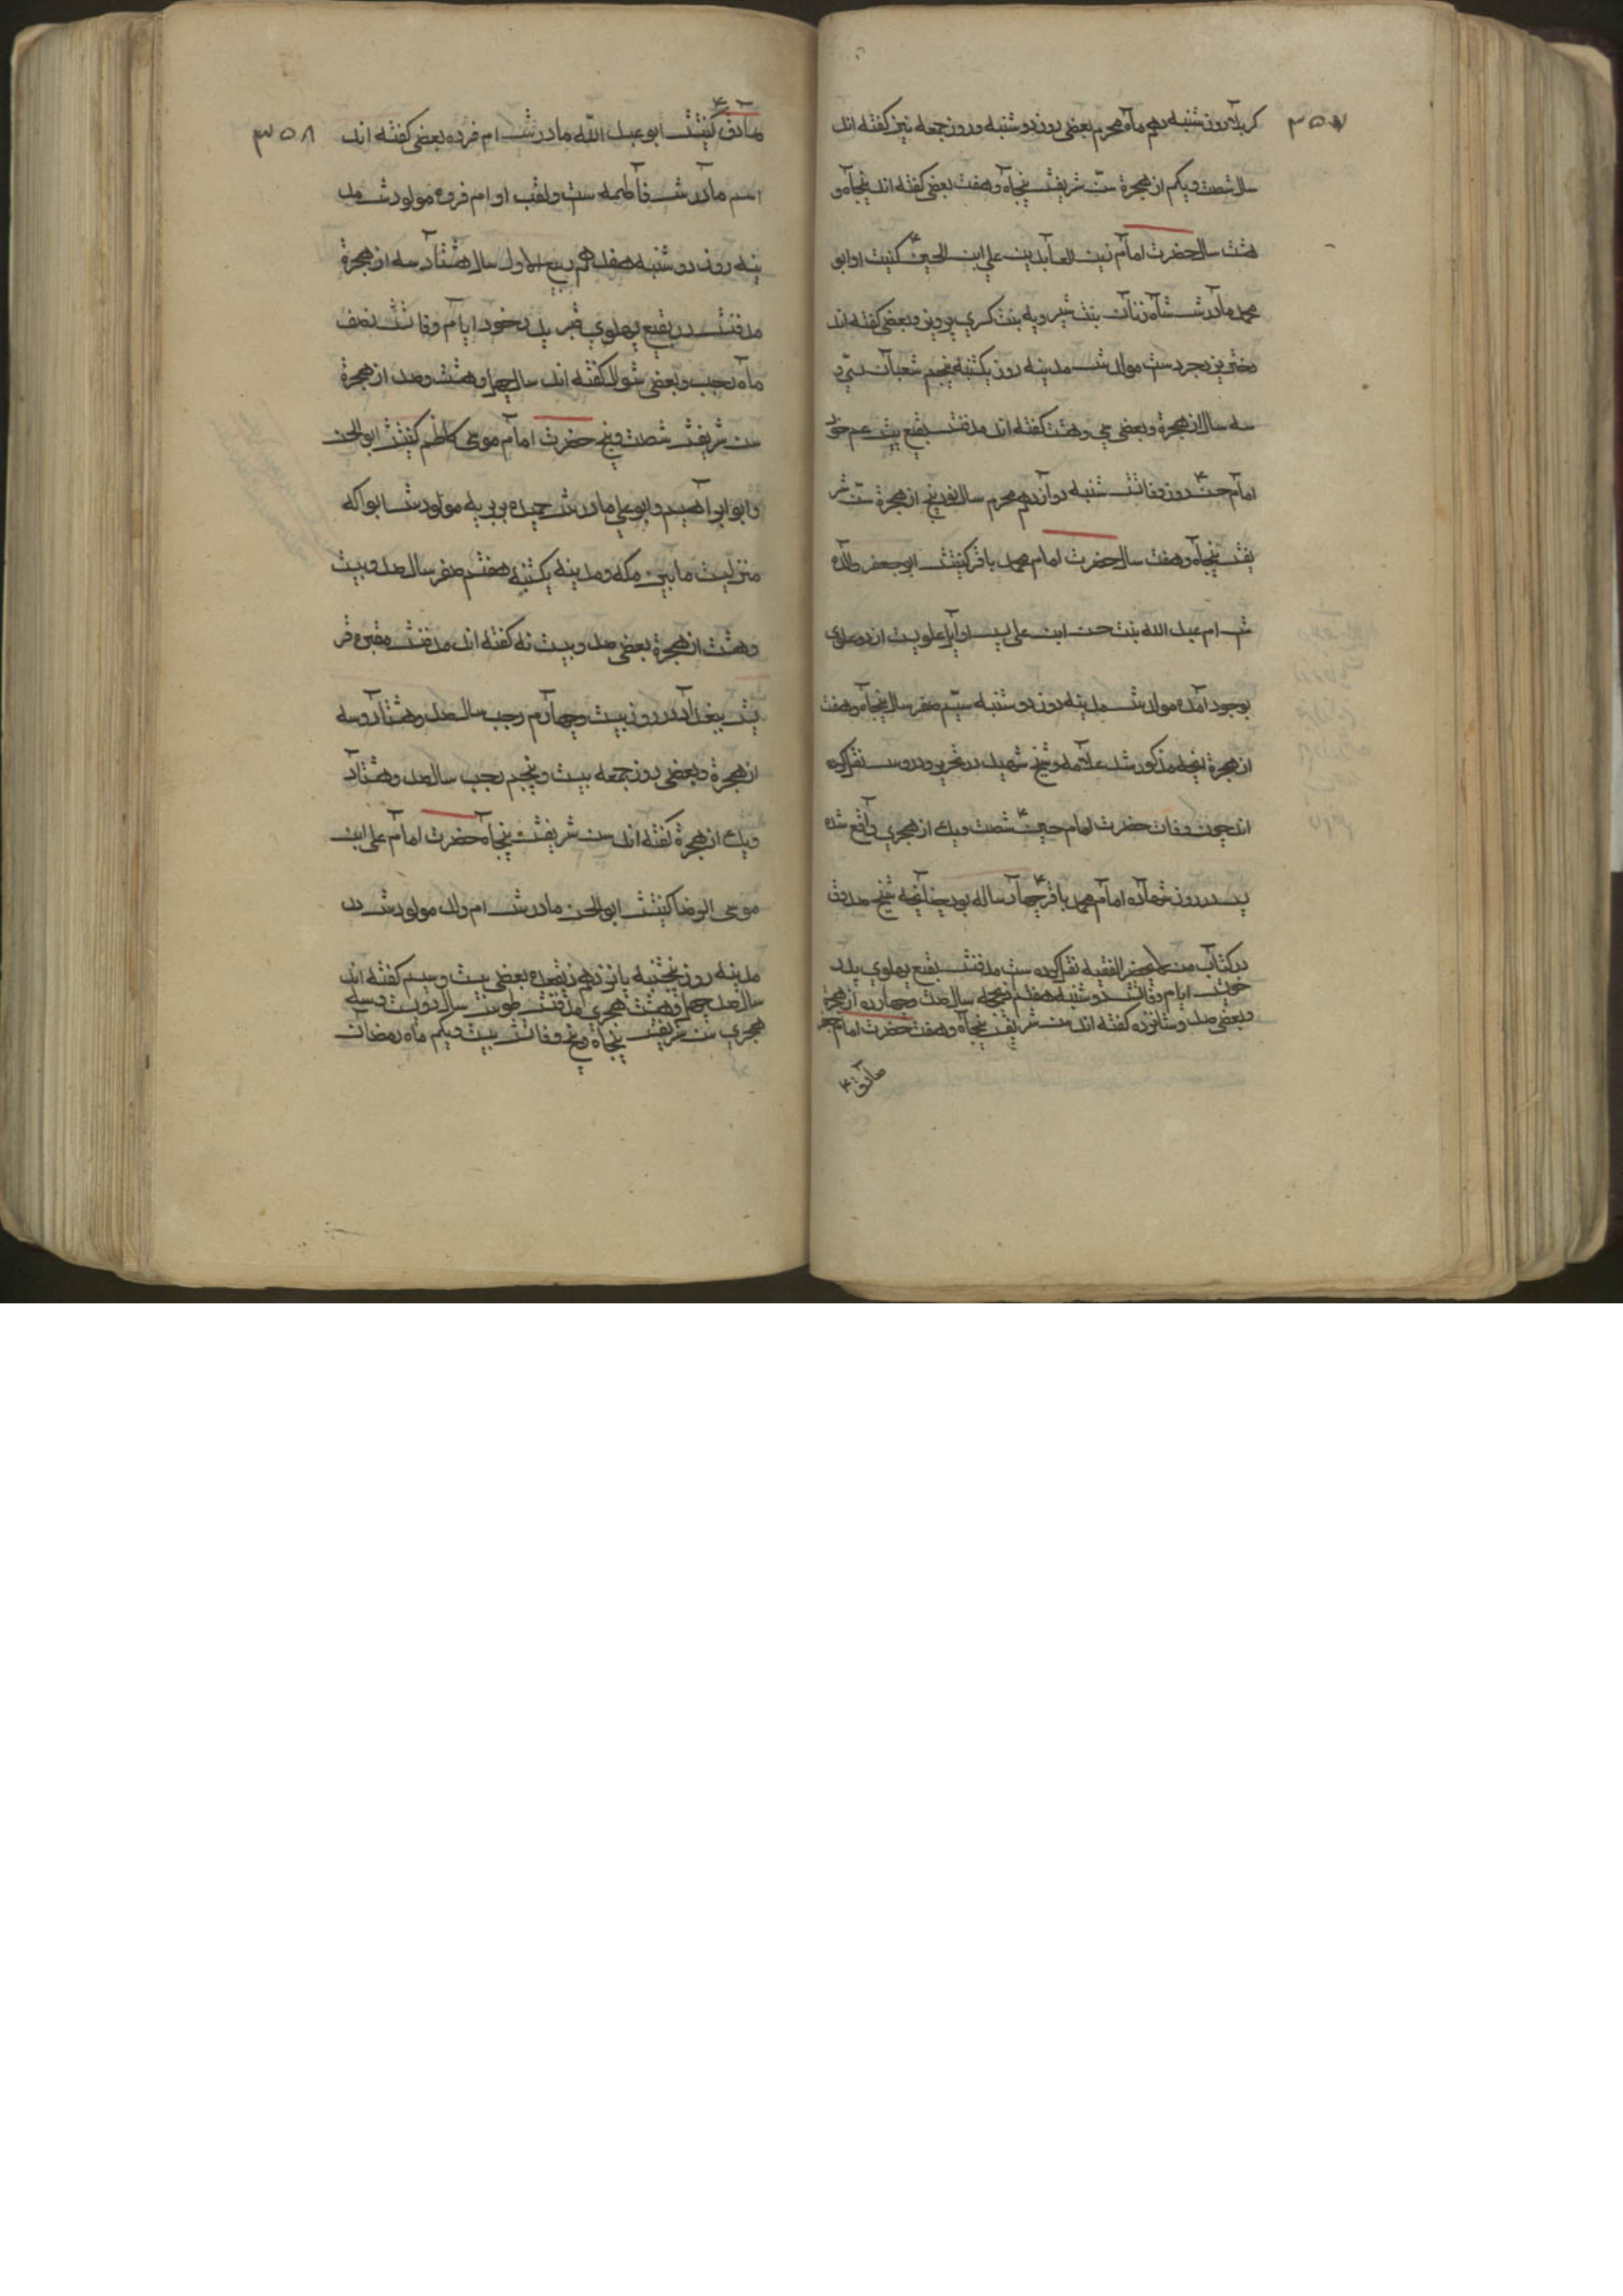 ۳۵۷
کربلا روز شنبه دهم ماه محرم بعضی روز دوشنبه و روز جمعه نیز کفته اند
سال شصت و یکم از هجرة سن شریفش پنجاه و هفت بعضی کفته اند پنجاه و
هشت سال حضرت امام زین العابدین علی ابن الحسین ع کنیت او ابو
محمد مادرش شاه زنان بنت شیرویه بنت کسری پرویز و بعضی کفته اند
دختر یزدجردست مولدش مدینه روز یکشنبه پنجم شعبان سی و
سه سال از هجرة و بعضی سی و هشت کفته اند مدفنش بقیع پیش عم خود
امام حسن ع روز وفاتش شنبه دوازدهم محرم سال نود پنج از هجرة سن شر
یفش پنجاه و هفت سال حضرت امام محمد باقر کنیتش ابو جعفر والده
ش ام عبد الله بنت حسن ابن علی پس او اول علویست از دو علوی
بوجود آمده مولدش مدینه روز دوشنبه سیّم صفر سال پنجاه و هفت
از هجرة انچه مذکور شد علامه و شیخ شهید در تحریر و دروس نقل کرده
اند چون وفات حضرت امام حسین ع شصت ویک از هجری واقع شده
پس در روز شهاده امام محمد باقر ع چهار ساله بود چنانچه شیخ صدوق
در کتاب من لا یحضر الفقیه نقل کرده ست مدفنش بقیع پهلوی پدر
خویش ایام وفاتش دوشنبه هفتم ذیحجه سال صد و چهارده از هجرة
و بعضی صد و شانزده کفته اند سن شریفش پنجاه و هفت حضرت امام جعفر
صادق ع
۳۵۸
صادق ع کنیتش ابو عبد الله مادرش ام فرده بعضی کفته اند
اسم مادرش فاطمه ست و لقب او ام فروه مولودش مد
ینه روز دوشنبه هفدهم ربیع الاول سال هشتاد سه از هجرة
مدفنش در بقیع پهلوی قبر پدر خود ایام وفاتش نصف
ماه رجب و بعضی شوال کفته اند سال چهل و هشت و صد از هجرة
سن شریفش شصت و پنج حضرت امام موسی کاظم کنیتش ابو الحسن
و ابو ابراهیم و ابو علی مادرش حمیده بربریه مولودش ابوا که
منزلیست ما بین مکه و مدینه یکشنبه هفتم صفر سال صد و بیست
و هشت از هجرة بعضی صد و بیست نه کفته اند مدفنش مقبره قر
یش بغداد در روز بیست و چهارم رجب سال صد و هشتاد و سه
از هجرة و بعضی روز جمعه بیست و پنجم رجب سال صد و هشتاد
ویک از هجرة کفته اند سن شریفش پنجاه حضرت امام علی ابن
موسی الرضا کنیتش ابو الحسن مادرش ام ولد مولودش در
مدینه روز پنجشنبه یانزدهم ذیقعده بعضی بیست و سیم کفته اند
سال صد چهل و هشت هجری مدفنش طوس سال دویست و سه
هجری سن شریفش پنجاه و پنج وفاتش بیست و یکم ماه رمضان